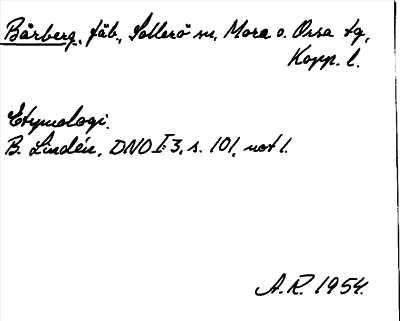 Bårberg, fäb., Sollerö sn, Mora o. Orsa tg,
Kopp. l.
Etymologi.
B. Lindén, DNO I:3, s. 101, not 1.
A.R. 1954.